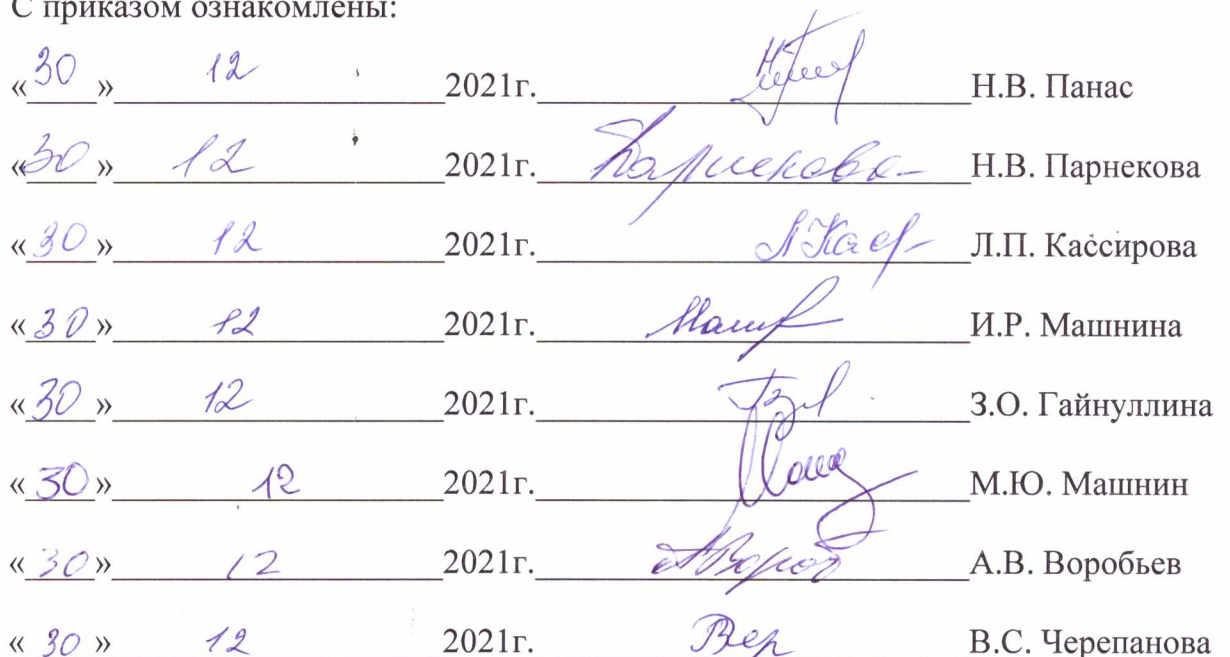 С приказом ознакомлены:
«30» 12 2021г. Н.В. Панас
«30» 12 2021г. Парнекова Н.В. Парнекова
«30» 12 2021г. Л.П. Кассирова
«30» 12 2021г. И.Р. Машнина
«30» 12 2021г. З.О. Гайнуллина
«30» 12 2021г. М.Ю. Машнин
«30» 12 2021г. АВороб А.В. Воробьев
«30» 12 2021г. В.С. Черепанова